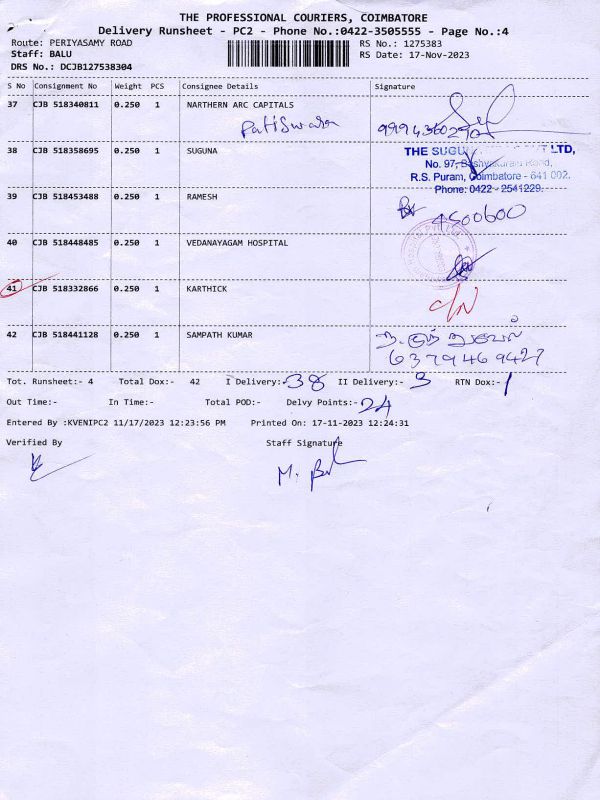 THE PROFESSIONAL COURIERS, COIMBATORE
Delivery Runsheet - PC2 - Phone No.:0422-3505555 - Page No.:4
Route: PERIYASAMY ROAD
RS No.: 1275383
Staff: BALU
RS Date: 17-Nov-2023
DRS No.: DCJB127538304
S No Consignment No Weight PCS Consignee Details Signature
37 CJB 518340811 0.250 1 NARTHERN ARC CAPITALS
38 CJB 518358695 0.250 1 SUGUNA
THE SUGU LTD,
No. 97, Road,
R.S. Puram, Coimbatore - 641 002.
Phone: 0422 - 2541229.
39 CJB 518453488 0.250 1 RAMESH
4500600
40 CJB 518448485 0.250 1 VEDANAYAGAM HOSPITAL
41 CJB 518332866 0.250 1 KARTHICK
C/N
42 CJB 518441128 0.250 1 SAMPATH KUMAR
6379469427
Tot. Runsheet:- 4 Total Dox:- 42 I Delivery:- 38 II Delivery:- 3 RTN Dox:- 1
Out Time:- In Time:- Total POD:- Delvy Points:- 24
Entered By :KVENIPC2 11/17/2023 12:23:56 PM Printed On: 17-11-2023 12:24:31
Verified By Staff Signature